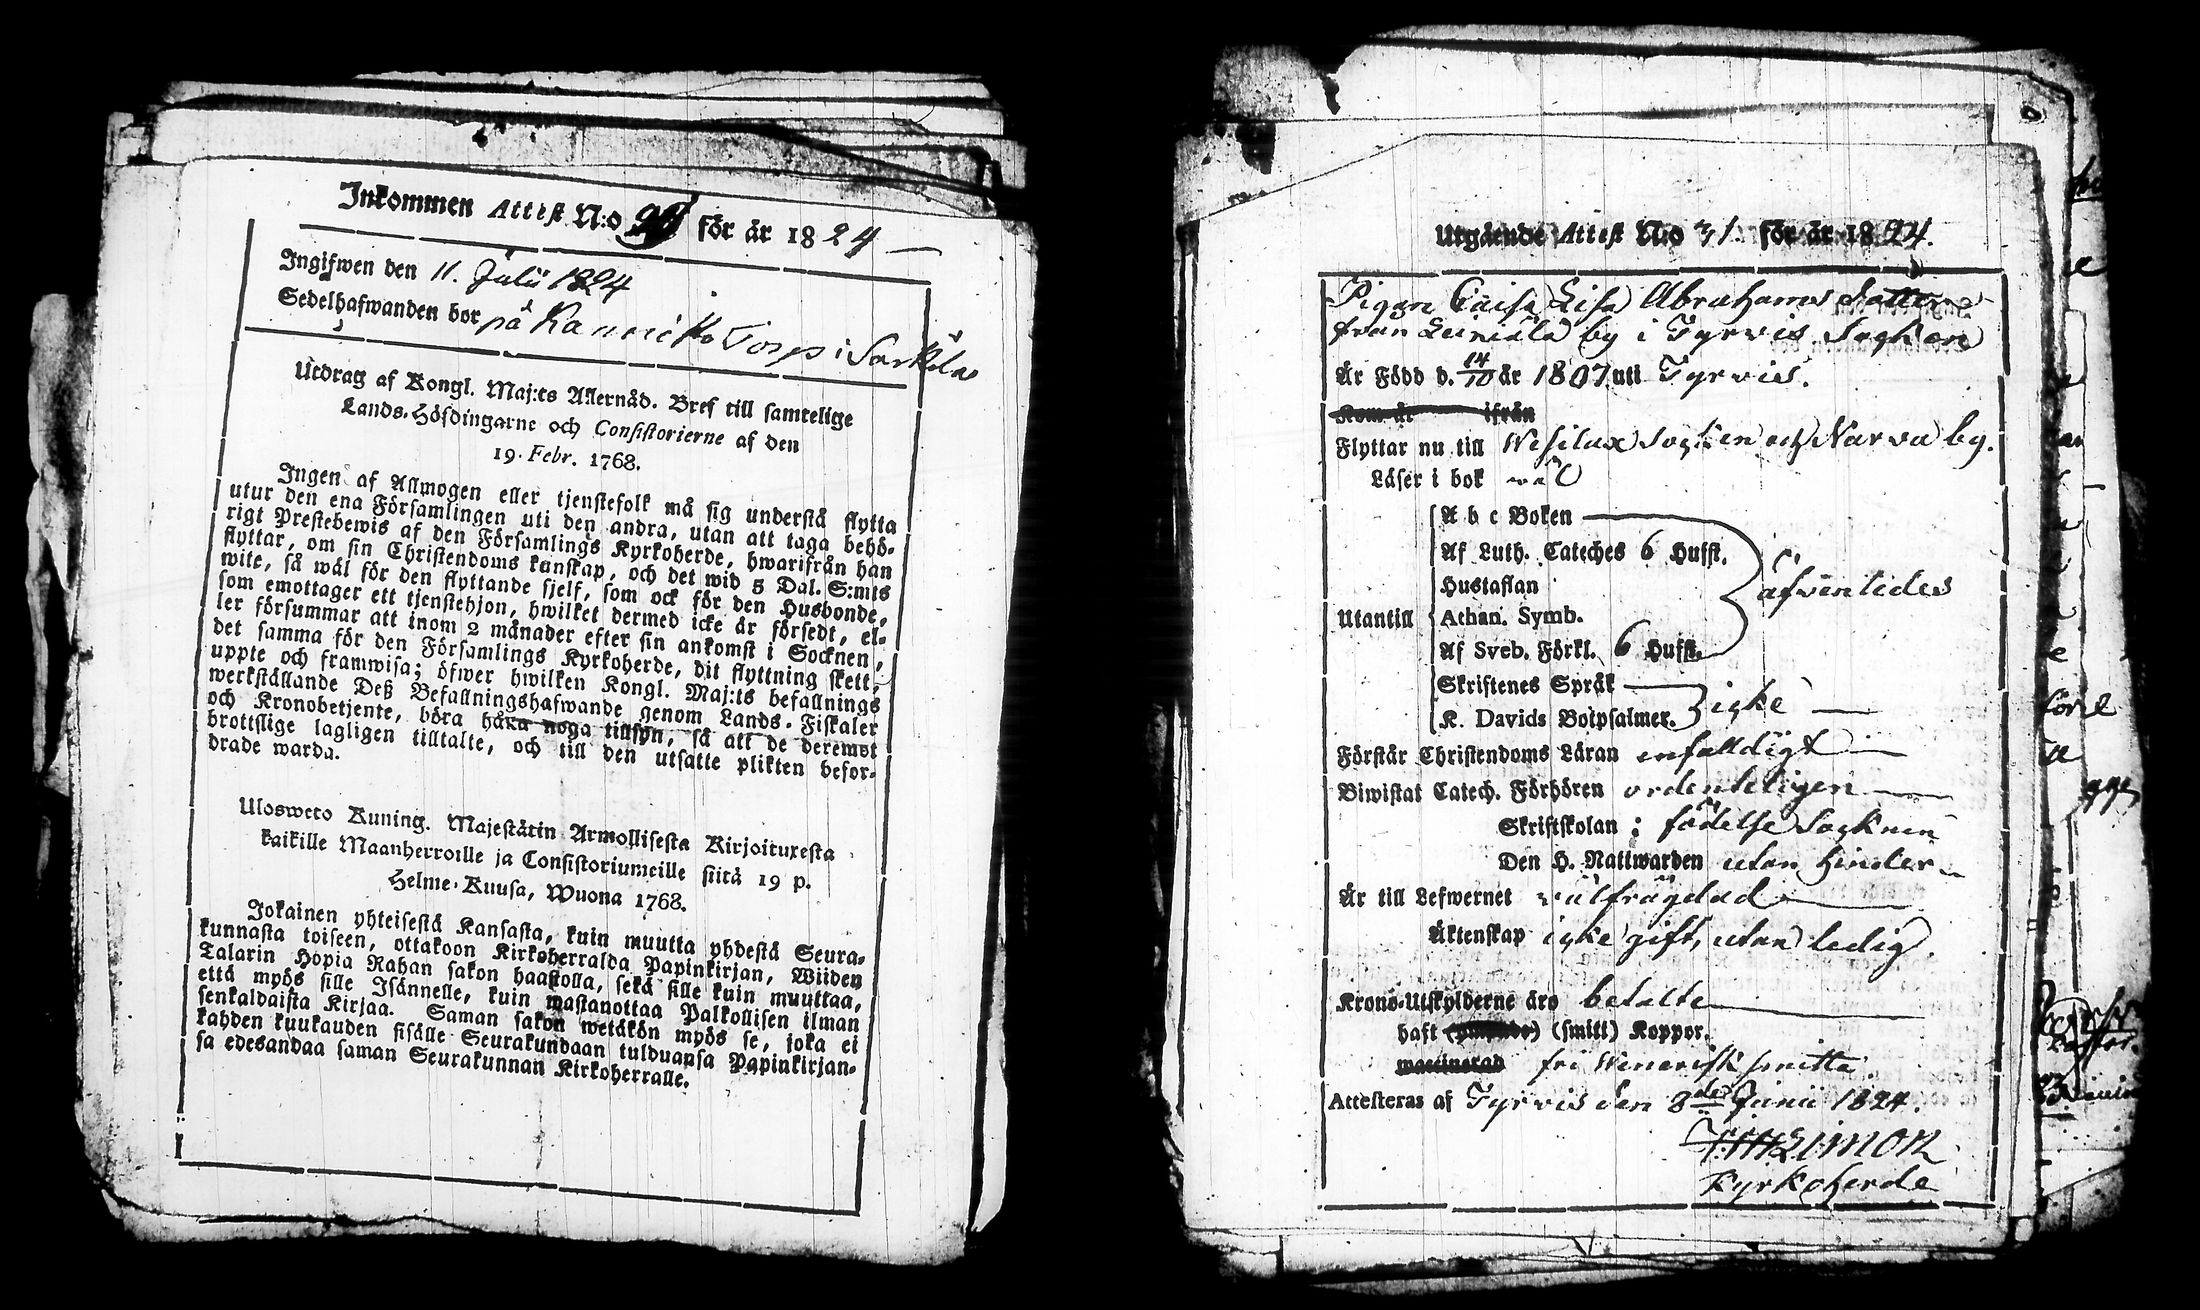 Inkommen Attest N:o för år 1824
Ingifwen den 11. Julii 1824
Sedelhafwanden bor på Torp i Sarkila
Utdrag af Kongl. Maj:ts Allernåd. Bref till samtelige
Lands-Höfdingarne och Consistorierne af den
19. Febr. 1768.
Ingen af Allmogen eller tjenstefolk må sig understå flytta
utur den ena Församlingen uti den andra, utan att taga behö-
rigt Prestebewis af den Församlings Kyrkoherde, hwarifrån han
flyttar, om sin Christendoms kunskap, och det wid 5 Dal. S:mts
wite, så wäl för den flyttande sjelf, som ock för den Husbonde,
som emottager ett tjenstehjon, hwilket dermed icke är försedt, el-
ler försummar att inom 2 månader efter sin ankomst i Socknen,
det samma för den Församlings Kyrkoherde, dit flyttning skett,
uppte och framwisa; öfwer hwilken Kongl. Maj:ts befallnings
werkställande Deß Befallningshafwande genom Lands-Fiskaler
och Kronobetjente, böra håka noga tillsyn, så att de deremot
brottslige lagligen tilltalte, och till den utsatte plikten befor-
drade warda.
Ulosweto Kuning. Majestätin Armollisesta Kirjoituxesta
kaikille Maanherroille ja Consistoriumeille siitä 19 p.
Helme-Kuusa, Wuona 1768.
Jokainen yhteisestä Kansasta, kuin muutta yhdestä Seura-
kunnasta toiseen, ottakoon Kirkoherralda Papinkirjan, Wiiden
Talarin Hopia Rahan sakon haastolla, sekä sille kuin muuttaa,
että myös sille Isännelle, kuin wastanottaa Palkollisen ilman
senkaldaista Kirjaa. Saman sakon wetäkön myös se, joka ei
kahden kuukauden sisälle Seurakundaan tulduansa Papinkirjan-
sa edesandaa saman Seurakunnan Kirkoherralle.
Utgående Attest N:o 31 för år 1824.
Pigan Caisa Lisa Abrahams dotter
från by i Tyrvis Sochen
Är Född d. 14/10 år 1807 uti Tyrvis.
Kom år ifrån
Flyttar nu till Wesilax Socken och Narva by.
Läser i bok wäl
Utantill
A b c Boken
Af Luth. Cateches 6 Hufst.
Hustaflan
Athan. Symb.
Af Sveb. Förkl. 6 Hufst.
äfvenledes
Skriftenes Språk
K. Davids Botpsalmer.
icke
Förstår Christendoms Läran enfaldigt
Biwistat Catech. Förhören ordenteligen
Skriftskolan i födelse Socknen
Den H. Nattwarden utan hinder
Är till Lefwernet välfrägdad
Äktenskap icke gift, utan ledig
Krono-Utskylderne äro betalte
haft (smitt) Koppor.
waccinerad fri Wenerisk smitta
Attesteras af Tyrvis den 8de Junii 1824.
Limon
Kyrkoherde